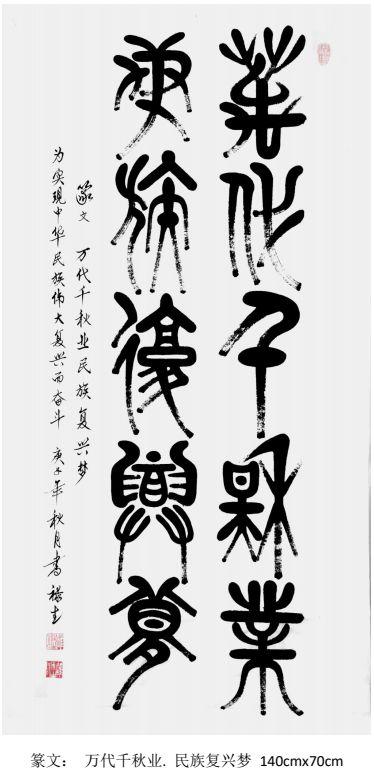 萬代千秋業
民族復興夢
篆文 万代千秋业民族复兴梦
为实现中华民族伟大复兴而奋斗 庚子年秋月書
篆文： 万代千秋业. 民族复兴梦 140cmx70cm